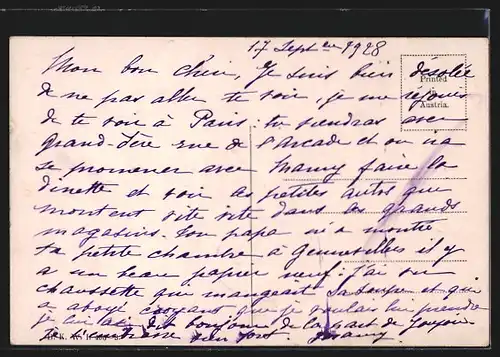 17 Sept bre 1928
Mon bon chéri, Je suis bien désolée
de ne pas aller te voir, je me réjouis
de te voir à Paris: tu viendras avec
grand-père rue de l'arcade et on ira
se promener avec Mamy faire la
dinette et voir les petites autos que
montent vite vite dans les grands
magasins. Ton papa m'a montré
ta petite chambre à Gennevilles il y
a un beau papier neuf: j'ai vu
chaussette qui mangeait sa soupe et qui
a aboyé croyant que je voulais lui prendre
je lui ai dit bonjour de la part de
bien fort Mamy
Printed
in
Austria.